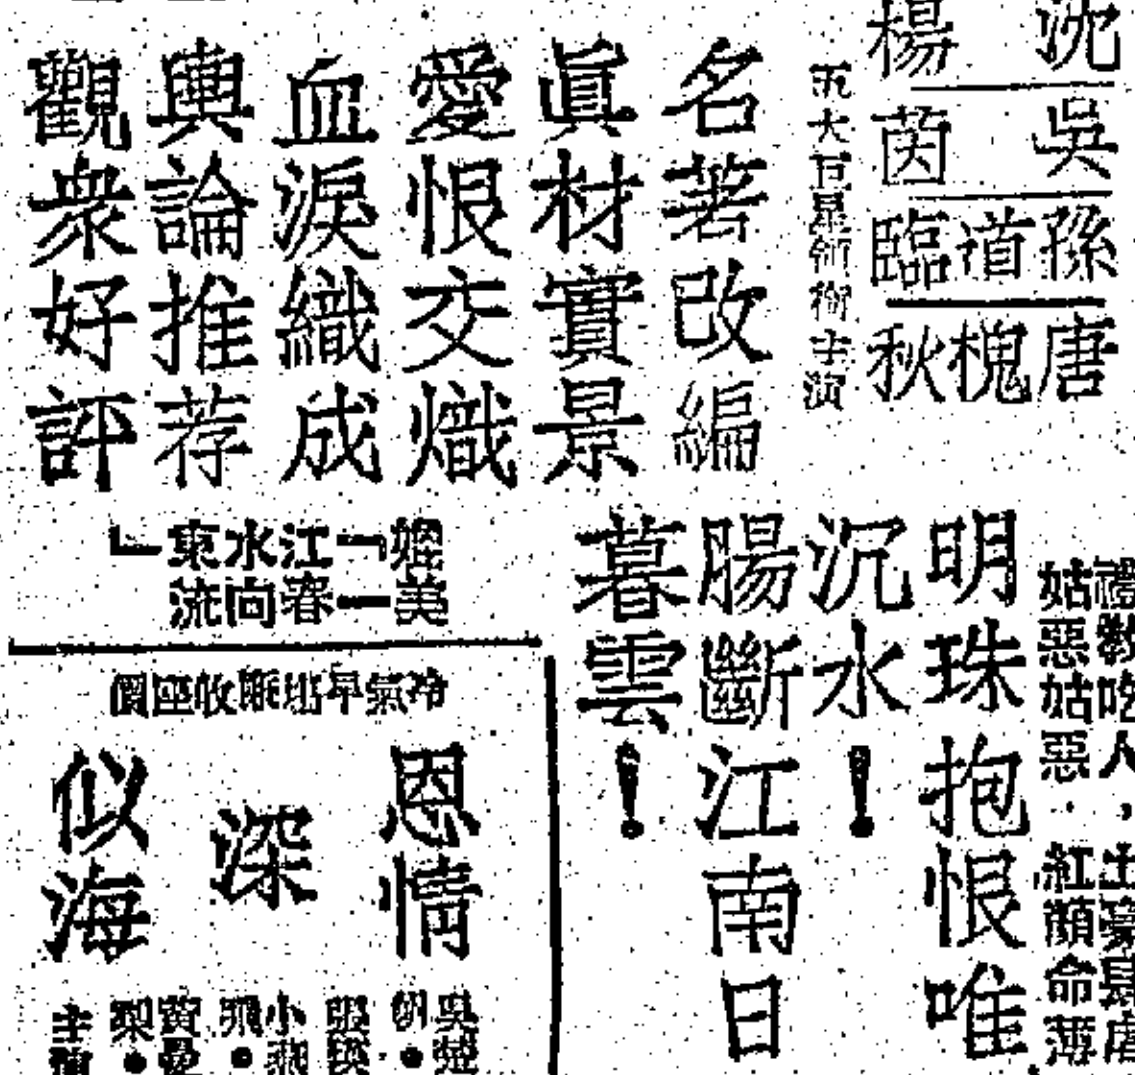 沈
吳
孫道臨
唐槐秋
楊
茵
五大巨星領銜主演
名著改編
眞材實景
愛恨交熾
血淚織成
輿論推荐
觀衆好評
禮教吃人，土豪
姑惡姑惡．紅顏命薄
明珠抱恨唯
沉水！
腸斷江南日
暮雲！
媲美
「一江春水向東流」
冷氣早場廠收座價
恩情
深
似海
吳楚帆．
張瑛
小燕飛．
黃曼梨．
主演